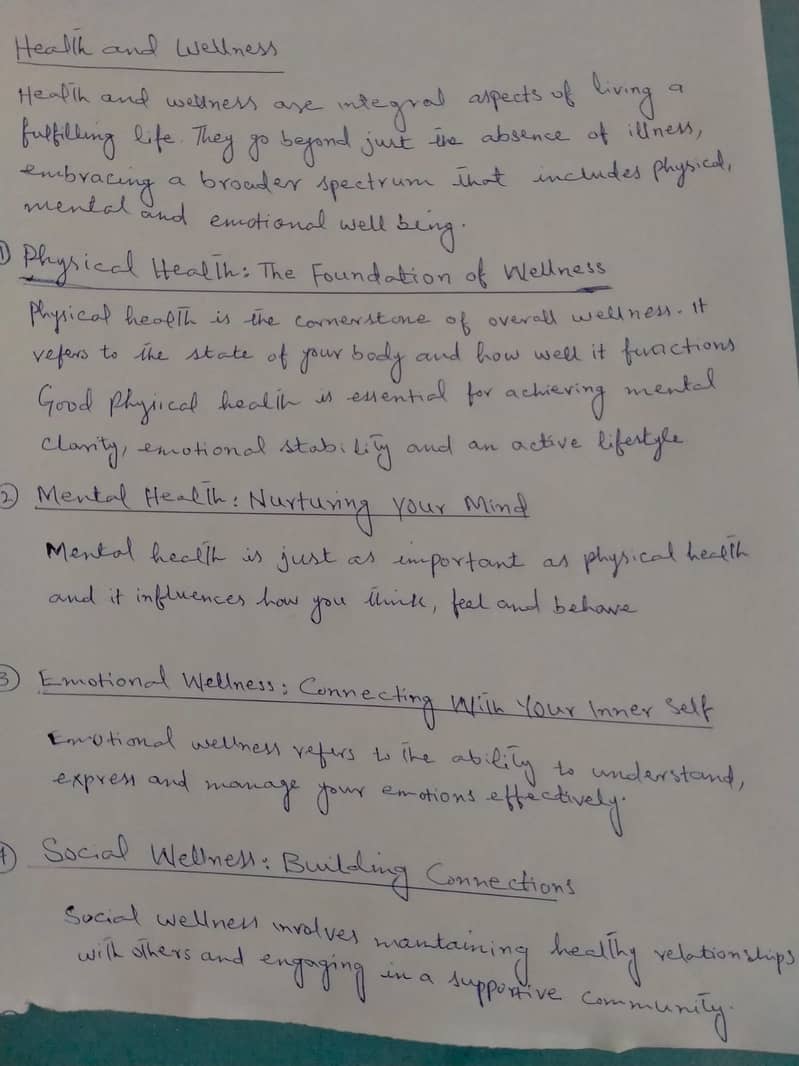 Health and Wellness
Health and wellness are integral aspects of living a
fulfilling life. They go beyond just the absence of illness,
embracing a broader spectrum that includes physical,
mental and emotional well being.
1) Physical Health: The Foundation of Wellness
Physical health is the cornerstone of overall wellness. It
refers to the state of your body and how well it functions
Good physical health is essential for achieving mental
clarity, emotional stability and an active lifestyle
2) Mental Health: Nurturing Your Mind
Mental health is just as important as physical health
and it influences how you think, feel and behave
3) Emotional Wellness: Connecting With Your Inner Self
Emotional wellness refers to the ability to understand,
express and manage your emotions effectively.
4) Social Wellness: Building Connections
Social wellness involves maintaining healthy relationships
with others and engaging in a supportive community.